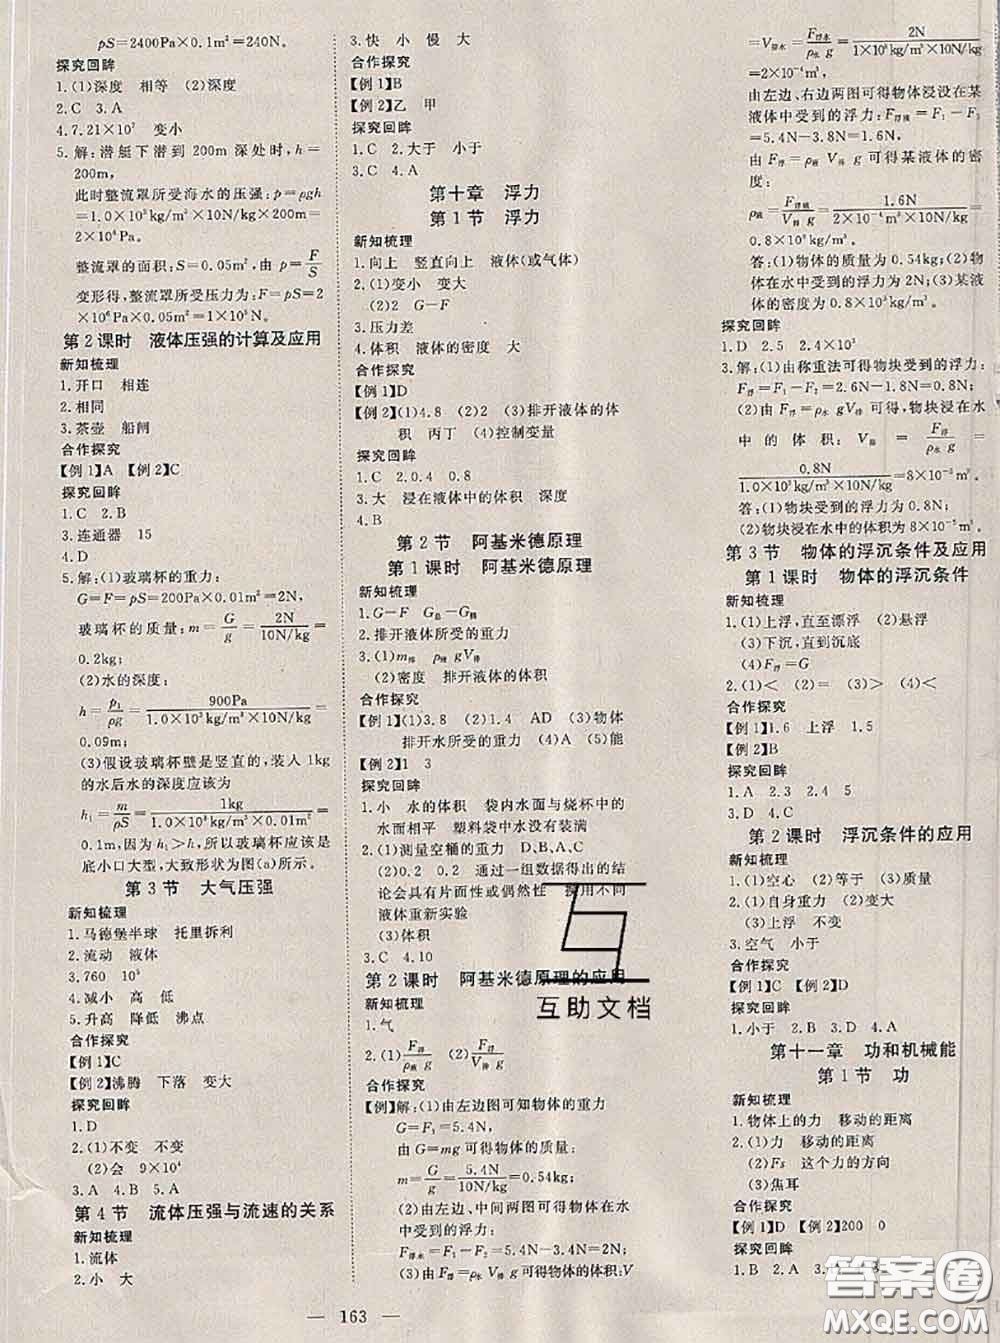 pS=2400Pa×0.1m²=240N。
探究回眸
1.(1)深度 相等 (2)深度
2.C 3.A
4.7.21×10⁷ 变小
5.解:潜艇下潜到200m深处时,h=
200m,
此时整流罩所受海水的压强:p=ρgh
=1.0×10³kg/m³×10N/kg×200m=
2×10⁶Pa。
整流罩的面积:S=0.05m²,由p=F/S
变形得,整流罩所受压力为:F=pS=2
×10⁶Pa×0.05m²=1×10⁵N。
第2课时 液体压强的计算及应用
新知梳理
1.开口 相连
2.相同
3.茶壶 船闸
合作探究
【例1】A 【例2】C
探究回眸
1.C 2.B
3.连通器 15
4.D
5.解:(1)玻璃杯的重力:
G=F=pS=200Pa×0.01m²=2N,
玻璃杯的质量:m=G/g=2N/10N/kg=
0.2kg;
(2)水的深度:
h=p₁/ρg=900Pa/1.0×10³kg/m³×10N/kg=
0.09m;
(3)假设玻璃杯壁是竖直的,装入1kg
的水后水的深度应该为
h₁=m/ρS=1kg/1.0×10³kg/m³×0.01m²=
0.1m,因为h₁>h,所以玻璃杯是
底小口大型,大致形状为图(a)所示。
第3节 大气压强
新知梳理
1.马德堡半球 托里拆利
2.流动 液体
3.760 10⁵
4.减小 高 低
5.升高 降低 沸点
合作探究
【例1】C
【例2】沸腾 下落 变大
探究回眸
1.D
2.(1)不变 不变
(2)会 9×10⁴
3.A 4.B 5.A
第4节 流体压强与流速的关系
新知梳理
1.流体
2.小 大
3.快 小 慢 大
合作探究
【例1】B
【例2】乙 甲
探究回眸
1.C 2.大于 小于
3.C 4.A
第十章 浮力
第1节 浮力
新知梳理
1.向上 竖直向上 液体(或气体)
2.(1)变小 变大
(2)2 G-F
3.压力差
4.体积 液体的密度 大
合作探究
【例1】D
【例2】(1)4.8 (2)2 (3)排开液体的体
积 丙丁 (4)控制变量
探究回眸
1.C 2.0.4 0.8
3.大 浸在液体中的体积 深度
4.B
第2节 阿基米德原理
第1课时 阿基米德原理
新知梳理
1.G-F G总-G桶
2.排开液体所受的重力
3.(1)m排 ρ液 gV排
(2)密度 排开液体的体积
合作探究
【例1】(1)3.8 (2)1.4 AD (3)物体
排开水所受的重力 (4)A (5)能
【例2】1 3
探究回眸
1.小 水的体积 袋内水面与烧杯中的
水面相平 塑料袋中水没有装满
2.(1)测量空桶的重力 D、B、A、C
(2)0.2 0.2 通过一组数据得出的结
论会具有片面性或偶然性 换用不同
液体重新实验
(3)体积
3.C 4.10
第2课时 阿基米德原理的应用
新知梳理
1.气
2.(1)F浮/ρ液g (2)F浮/V排g
合作探究
【例】解:(1)由左边图可知物体的重力
G=F₁=5.4N,
由G=mg可得物体的质量:
m=G/g=5.4N/10N/kg=0.54kg;
(2)由左边、中间两图可得物体在水
中受到的浮力:
F浮水=F₁-F₂=5.4N-3.4N=2N;
(3)由F浮=ρ水V排g可得物体的体积:V
=V排水=F浮水/ρ水g=2N/1×10³kg/m³×10N/kg
=2×10⁻⁴m³,
由左边、右边两图可得物体浸没在某
液体中受到的浮力:F浮液=F₁-F₃
=5.4N-3.8N=1.6N,
由F浮=ρ液V排g可得某液体的密
度:
ρ液=F浮液/V排g=1.6N/2×10⁻⁴m³×10N/kg=
0.8×10³kg/m³。
答:(1)物体的质量为0.54kg;(2)物
体在水中受到的浮力为2N;(3)某液
体的密度为0.8×10³kg/m³。
探究回眸
1.D 2.5 2.4×10³
3.解:(1)由称重法可得物块受到的浮力:
F浮=F₁-F₂=2.6N-1.8N=0.8N;
(2)由F浮=ρ水gV排可得,物块浸在水
中的体积:V排=F浮/ρ水g=
0.8N/1.0×10³kg/m³×10N/kg=8×10⁻⁵m³。
答:(1)物块受到的浮力为0.8N;
(2)物块浸在水中的体积为8×10⁻⁵m³。
第3节 物体的浮沉条件及应用
第1课时 物体的浮沉条件
新知梳理
1.(1)上浮,直至漂浮 (2)悬浮
(3)下沉,直到沉底
(4)F浮=G
2.(1)< (2)= (3)> (4)<
合作探究
【例1】1.6 上浮 1.5
【例2】B
探究回眸
1.A 2.3 2.4 5
3.D 4.C
第2课时 浮沉条件的应用
新知梳理
1.(1)空心 (2)等于 (3)质量
2.(1)自身重力 (2)变大
(3)上浮 不变
3.空气 小于
合作探究
【例1】C 【例2】C
探究回眸
1.小于 2.B 3.D 4.A
第十一章 功和机械能
第1节 功
新知梳理
1.物体上的力 移动的距离
2.(1)力 移动的距离
(2)Fs 这个力的方向
(3)焦耳
合作探究
【例1】D 【例2】200 0
探究回眸
1.B 2.A
— 163 —
互助文档
答案圈
MXQE.COM